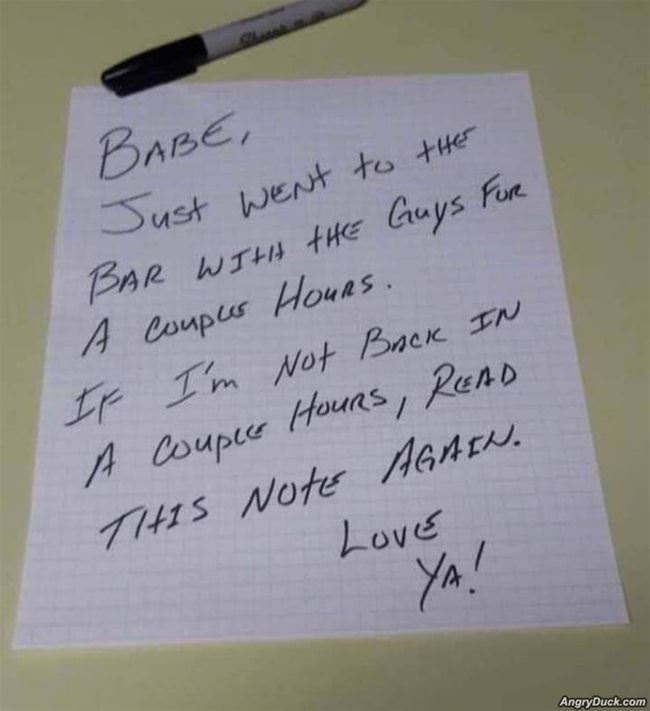 BABE,
Just WENt to tHE
BAR WItH tHE Guys FOR
A Couple Hours.
IF I'm Not Back IN
A Couple Hours, READ
THIS NOtE AGAIN.
LOVE
YA!
AngryDuck.com